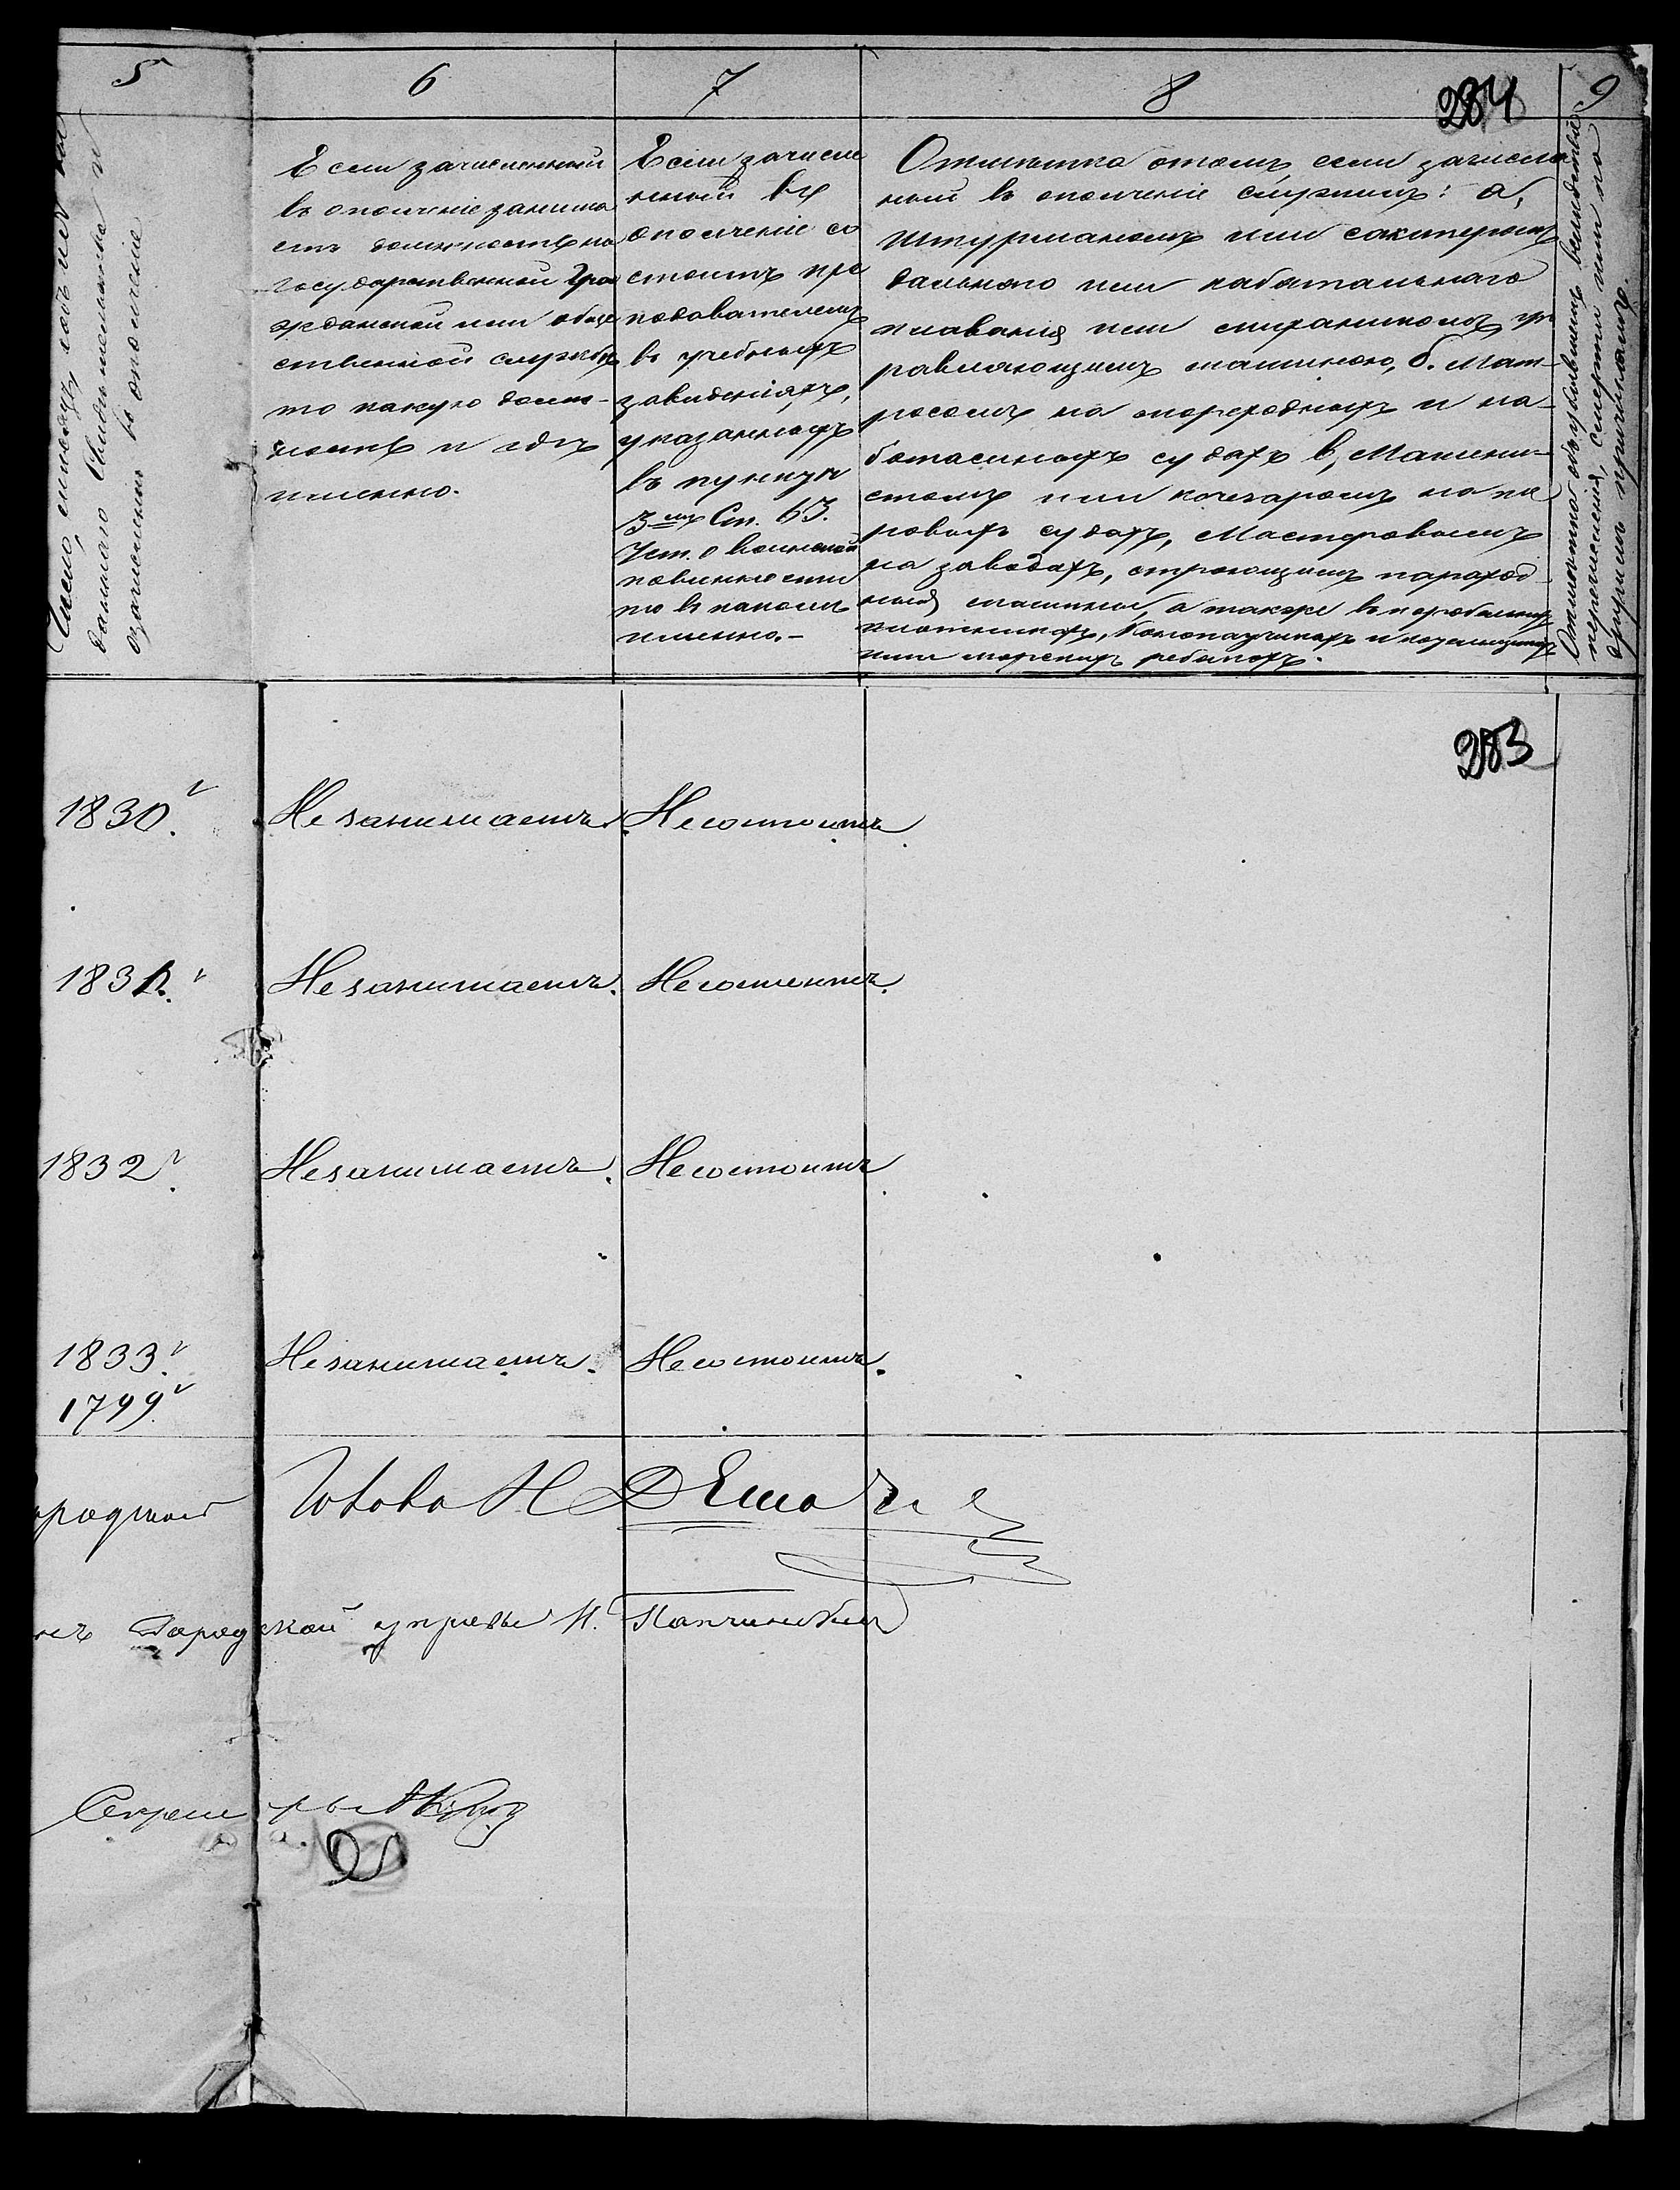 5
6
7
8
9
284
Число, мѣсяцъ, годъ и №
даннаго Свидѣтельства
о зачисленіи въ ополченіе
Если зачисленный
въ ополченіе занима
етъ должность по
государственной Гра
жданской или обще
ственной службѣ
то какую долж-
ность и гдѣ
именно.
Если зачисле
нный въ
ополченіе со
стоитъ пре
подавателемъ
въ учебныхъ
заведеніяхъ,
указанныхъ
въ пунктѣ
3мъ Ст. 63.
Уст. о воинской
повинности
то въ какомъ
именно.-
Отмѣтка о томъ, если зачисле
ный въ ополченіе служитъ: а,
штурманомъ или шкиперомъ
дальняго или каботажнаго
плаванія или механикомъ, уп
равляющимъ машиною, б. Мат-
росомъ на мореходныхъ и ка-
ботажныхъ судахъ в, Машини-
стомъ или кочегаромъ на па
ровыхъ судахъ, Мастеровымъ
на заводахъ, строющихъ пароход-
ныя машины, а также корабельныхъ
плотникахъ, Конопатчикахъ и котельщикахъ
или морскихъ рыбакахъ.
Отмѣтка объ убывшихъ вслѣдствіе
перечисленія, смерти или по
другимъ причинамъ.
283
1830. Незанимаетъ. Несостоитъ.
1831. Незанимаетъ. Несостоитъ.
1832. Незанимаетъ. Несостоитъ.
1833. Незанимаетъ. Несостоитъ.
1799.
Голова Н
нъ Городской управы Н.
Секретарь